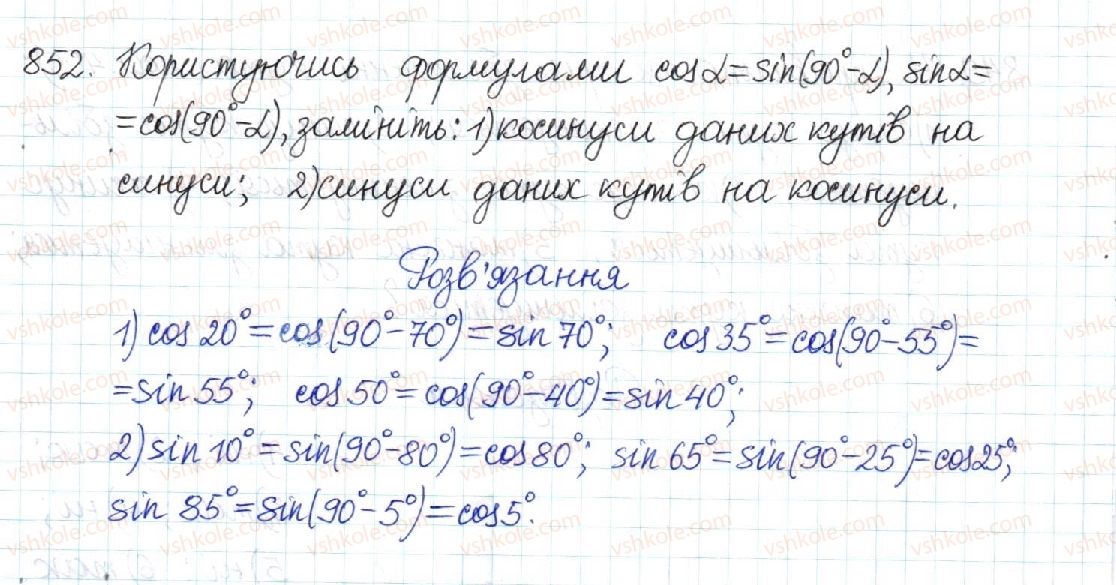 852. Користуючись формулами cosα=sin(90°-α), sinα=
=cos(90°-α), замініть: 1)косинуси даних кутів на
синуси; 2)синуси даних кутів на косинуси.
Розв'язання
1) cos 20°=cos(90°-70°)=sin 70°; cos 35°=cos(90°-55°)=
=sin 55°; cos 50°=cos(90°-40°)=sin 40°;
2) sin 10°=sin(90°-80°)=cos 80°; sin 65°=sin(90°-25°)=cos25°;
sin 85°=sin(90°-5°)=cos5°.